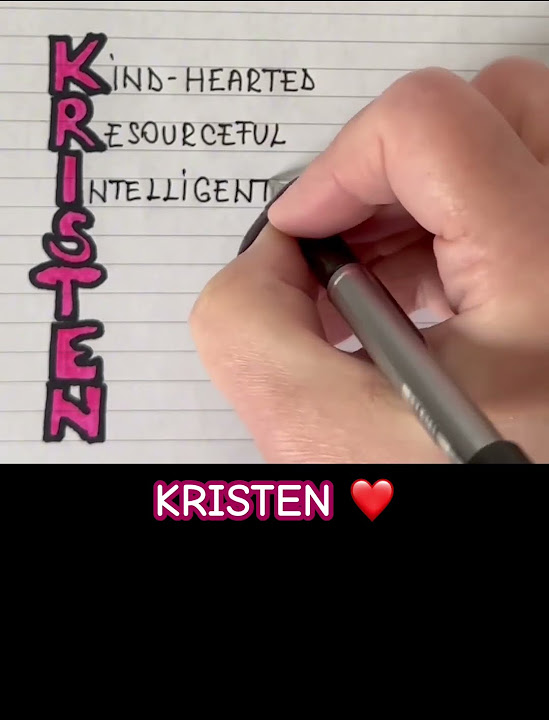 KiND-HEARTED
RESOURCEFUL
INTELLiGENT
S
T
E
N
KRISTEN ❤️